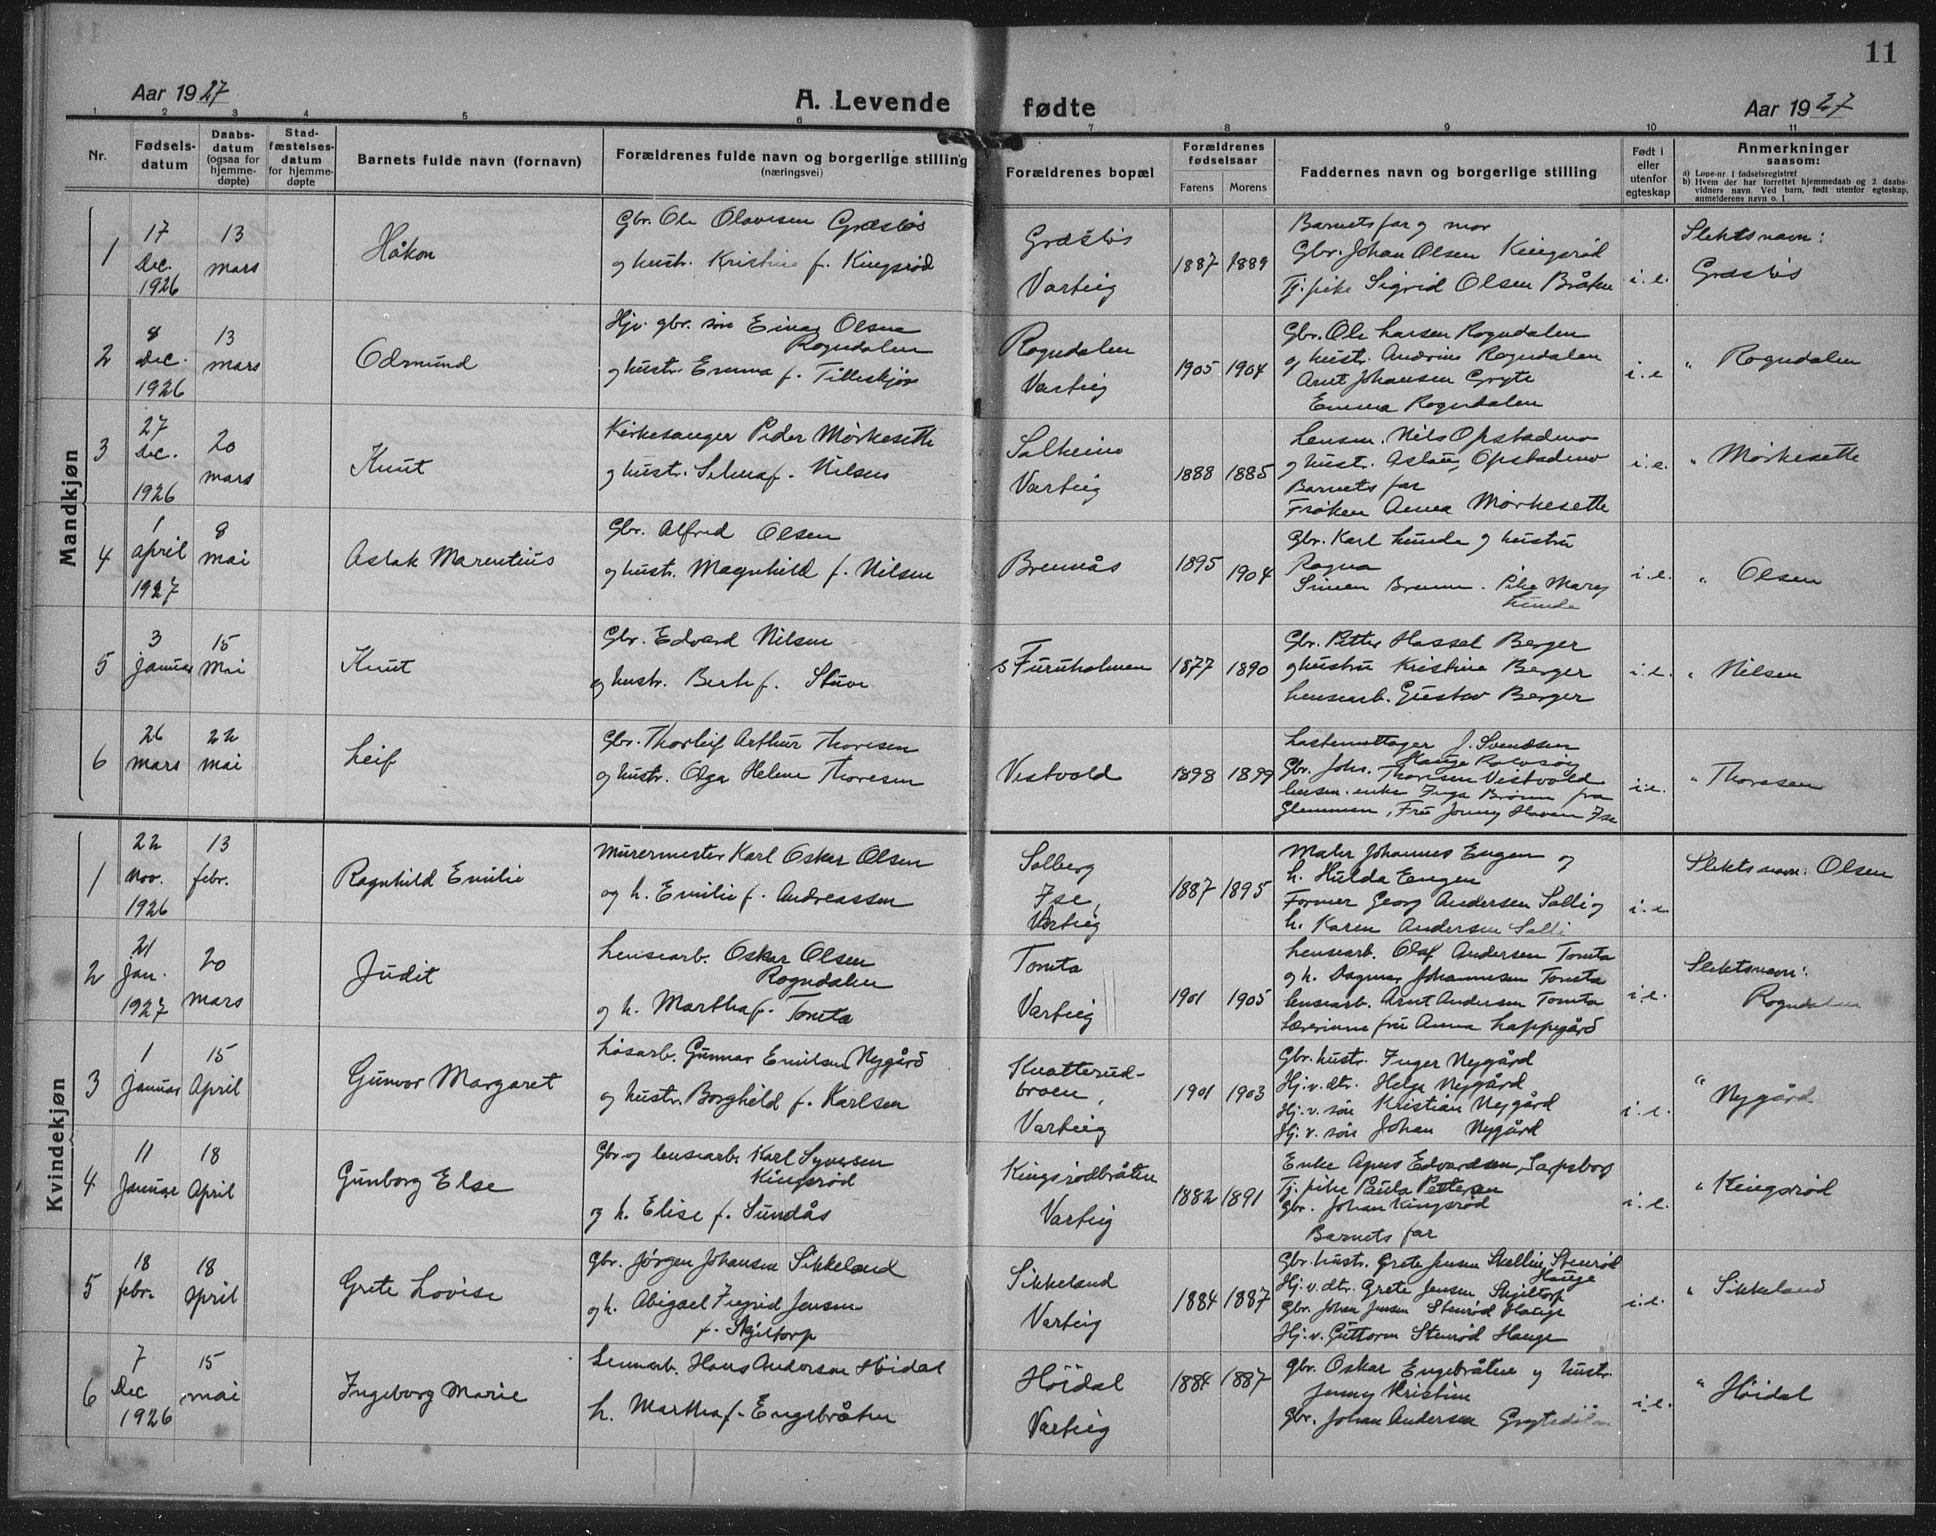 11
Aar 1927
A. Levende
fødte
Aar 1927
1 2 3 4 5 6 7 8 9 10 11
Nr.
Fødsels-
datum
Daabs-
datum
(ogsaa for
hjemme-
døpte)
Stad-
fæstelses-
datum
for hjemme-
døpte
Barnets fulde navn (fornavn)
Forældrenes fulde navn og borgerlige stilling
(næringsvei)
Forældrenes bopæl
Forældrenes
fødselsaar
Farens
Morens
Faddernes navn og borgerlige stilling
Født i
eller
utenfor
egteskap
Anmerkninger
saasom:
a) Løpe-nr. i fødselsregistret
b) Hvem der har forrettet hjemmedaab og 2 daabs-
vidners navn. Ved barn, født utenfor egteskap,
anmelderens navn o. l.
Mandkjøn
1
17
Dec.
1926
13
mars
Håkon
Gbr. Ole Olavesen Græsløs
og hustr. Kristine f. Kingsrød
Græsløs
Varteig
1887 1889
Barnets far og mor
Gbr. Johan Olsen Kingsrød
Tj. pike Sigrid Olsen Bråten
i. e.
Slektsnavn:
Græsløs
2
8
Dec.
1926
13
mars
Odmund
Hjv. gbr. søn Einar Olsen
Rogndalen
og hustr. Emma f. Tilleskjør
Rogndalen
Varteig
1905 1904
Gbr. Ole Larsen Rogndalen
og hustr. Andrine Rogndalen
Arnt Johansen Gryte
Emma Rogndalen
i. e
" Rogndalen
3
27
Dec.
1926
20
mars
Knut
Kirkesanger Peder Mørkesette
og hustr. Selma f. Nilsen
Solheim
Varteig
1888 1885
Lensm. Nils Opstadmo
og hust. Aslau, Opstadmo
Barnets far
Frøken Anna Mørkesette
i. e.
" Mørkesette
4
1
april
1927
8
mai
Aslak Marentius
Gbr. Alfred Olsen
og hustr. Magnhild f. Nilsen
Brennås
1895 1904
Gbr. Karl Lunde og hustru
Ragna
Simen Brenn. Pike Mary
Lunde
i. e.
" Olsen
5
3
januar
15
Mai
Knut
Gbr. Edvard Nilsen
og hustr. Berte f. Stuve
Furuholmen
1877 1890
Gbr. Petter Hassel Berger
og hustru Kristine Berger
Lensearb. Gustav Berger
i. e.
" Nilsen
6
26
mars
22
mai
Leif
Gbr. Thorleif Arthur Thoresen
og hustr. Olga Helene Thoresen
Vestvold
1898 1899
Lastemottager J. Svendsen
Hauge Rolvsøy
Gbr. Johs. Thoresen Vestvold
Lensem. enke Inga Brønn fra
Glemmen, Fru Jenny Haven Ise
i. e.
" Thoresen
Kvindekjøn
1
22
Nov.
1926
13
febr.
Ragnhild Emilie
Murermester Karl Oskar Olsen
og h. Emilie f. Andreassen
Solberg
Ise,
Varteig
1887 1895
Maler Johannes Engen og
h. Hulda Engen
Former Georg Andersen Solli og
h. Karen Andersen Solli
i. e.
Slektsnavn: Olsen
2
21
Jan.
1927
20
mars
Judit
Lensearb. Oskar Olsen
Rogndalen
og h. Martha f. Tomta
Tomta
Varteig
1901 1905
Lensearb. Olaf Andersen Tomta
og h. Dagmar Johannesen Tomta
Lensearb. Arnt Andersen Tomta
Lærerinne fru Anna Lappegård
i. e.
Slektsnavn:
Rogndalen
3
1
Januar
15
April
Gunvor Margaret
Løsarb. Gunnar Emilsen Nygård
og hustr. Borghild f. Karlsen
Knatterud-
broen,
Varteig
1901 1903
Gbr. hustr. Inger Nygård
Hj. v. dtr. Helga Nygård
Hj. v. søn Kristian Nygård
Hj. v. søn Johan Nygård
i. e.
" Nygård
4
11
Januar
18
April
Gunborg Else
Gbr og lensearb. Karl Syversen
Kingsrød
og h. Elise f. Sundås
Kingsrødbråten
Varteig
1882 1891
Enke Agnes Edvardsen, Sarpsborg
Tj. pike Paula Pettersen
Gbr. Johan Kingsrød
Barnets far
i. e.
" Kingsrød
5
18
febr.
18
april
Grete Lovise
Gbr. Jørgen Johansen Sikkeland
og h. Abigael Ingrid Jensen
f. Skjeltorp
Sikkeland
Varteig
1884 1887
Gbr. hustr. Grete Jensen Stenrød
Hauge
Hj. v. dtr. Grete Jensen Skjeltorp
Gbr. Johan Jensen Stenrød Hauge
Hj. v. Guttorm Stenrød Hauge
i. e.
" Sikkeland
6
7
Dec
1926
15
mai
Ingeborg Marie
Hans Andersen Höidal
h. Martha f. Engebråten
Höidal
Varteig
1884 1887
Gbr. Oskar Engebråten og hustr.
Jenny Kristine
Gbr. Johan Andersen
i. e.
" Höidal